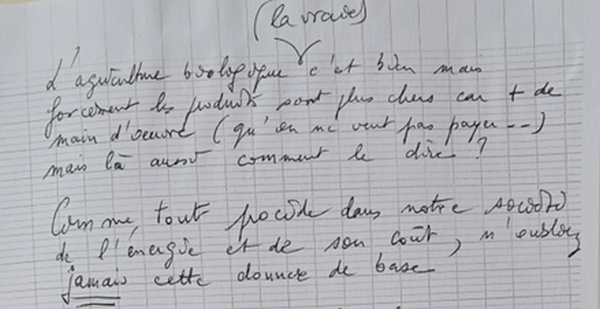 (la vraie)
L'agriculture biologique c'est bien mais
forcément les produits sont plus chers car + de
main d'oeuvre (qu'on ne veut pas payer --)
mais là aussi comment le dire ?
Comme, tout procède dans notre société
de l'énergie et de son coût, n'oubliez
jamais cette donnée de base